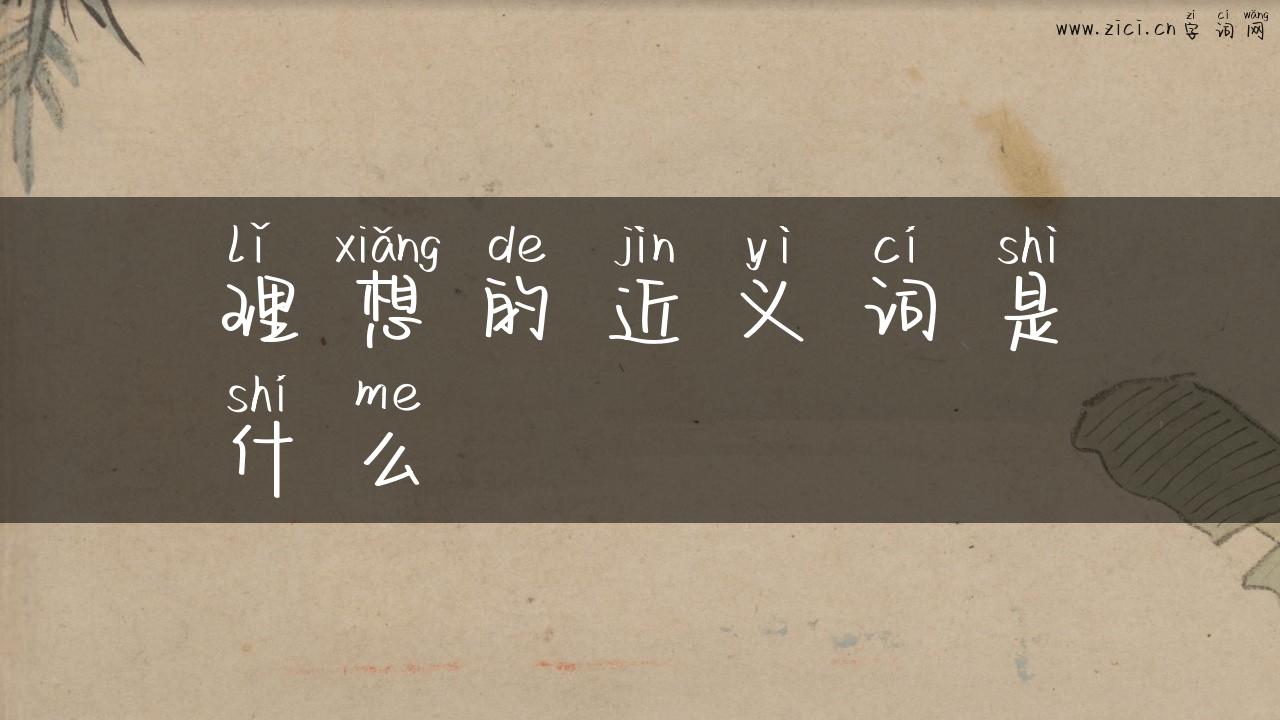 zì cí wǎng
www.zici.cn 字词网
lǐ xiǎng de jìn yì cí shì
理想的近义词是
shí me
什么